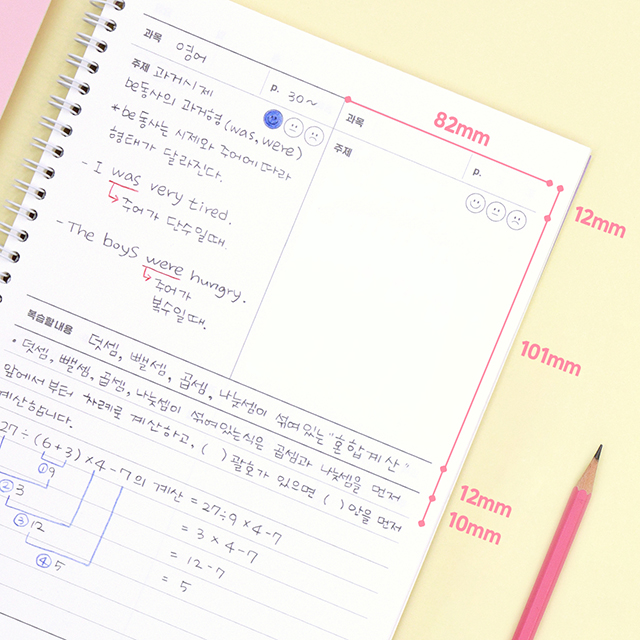 과목 영어
p. 30~
주제 과거시제
be동사의 과거형 (was, were)
* be동사는 시제와 주어에 따라
형태가 달라진다.
- I was very tired.
주어가 단수일때.
- The boys were hungry.
주어가
복수일때.
과목
주제
p.
82mm
12mm
101mm
12mm
10mm
복습할 내용 덧셈, 뺄셈, 곱셈, 나눗셈이 섞여있는 "혼합계산"
• 덧셈, 뺄셈, 곱셈, 나눗셈이 섞여있는식은 곱셈과 나눗셈을 먼저
앞에서부터 차례로 계산하고, ( ) 괄호가 있으면 ( ) 안을 먼저
계산합니다.
27÷(6+3)×4-7의 계산 = 27÷9×4-7
① 9
= 3×4-7
② 3
= 12-7
③ 12
= 5
④ 5